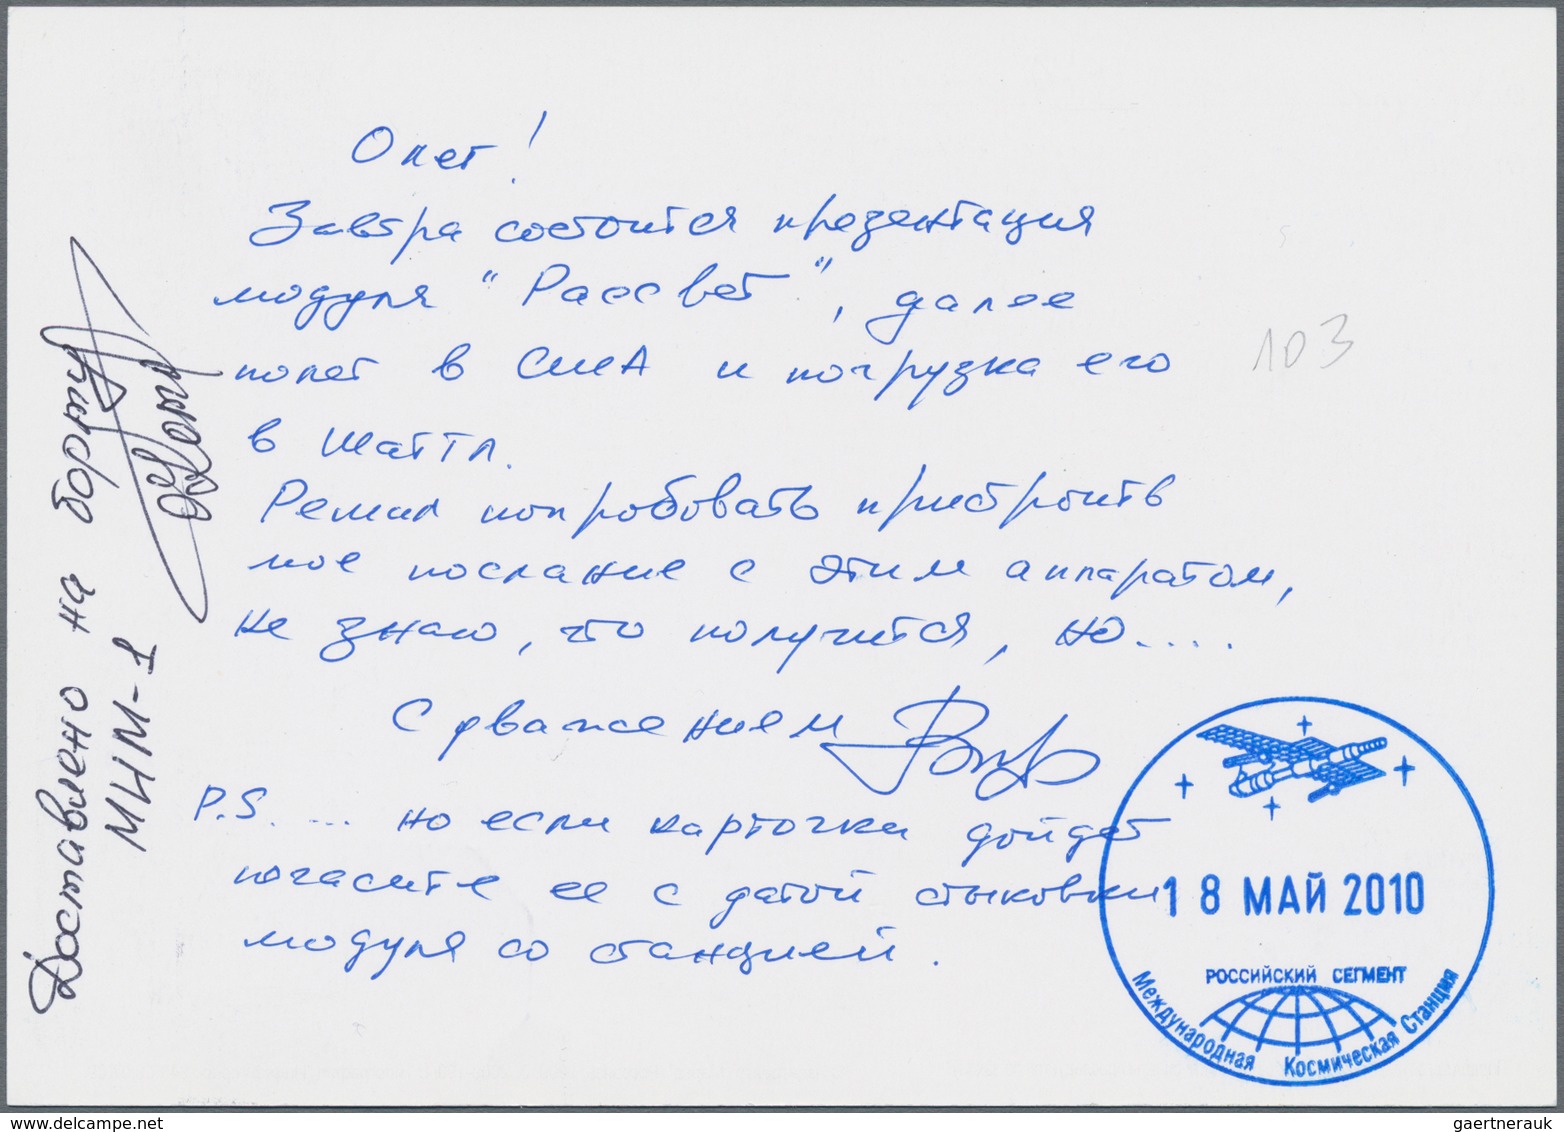 Олег!
Завтра состоится презентация
модуля "Рассвет", далее
полет в США и погрузка его
в Шаттл.
Решил попробовать пристроить
мое послание с этим аппаратом,
не знаю, что получится, но....
С уважением
P.S. ... но если карточка дойдет
погасите ее с датой стыковки
модуля со станцией.
Доставлено на борту
МИМ-1
103
18 МАЙ 2010
РОССИЙСКИЙ СЕГМЕНТ
Международная Космическая Станция
gaertnerauk